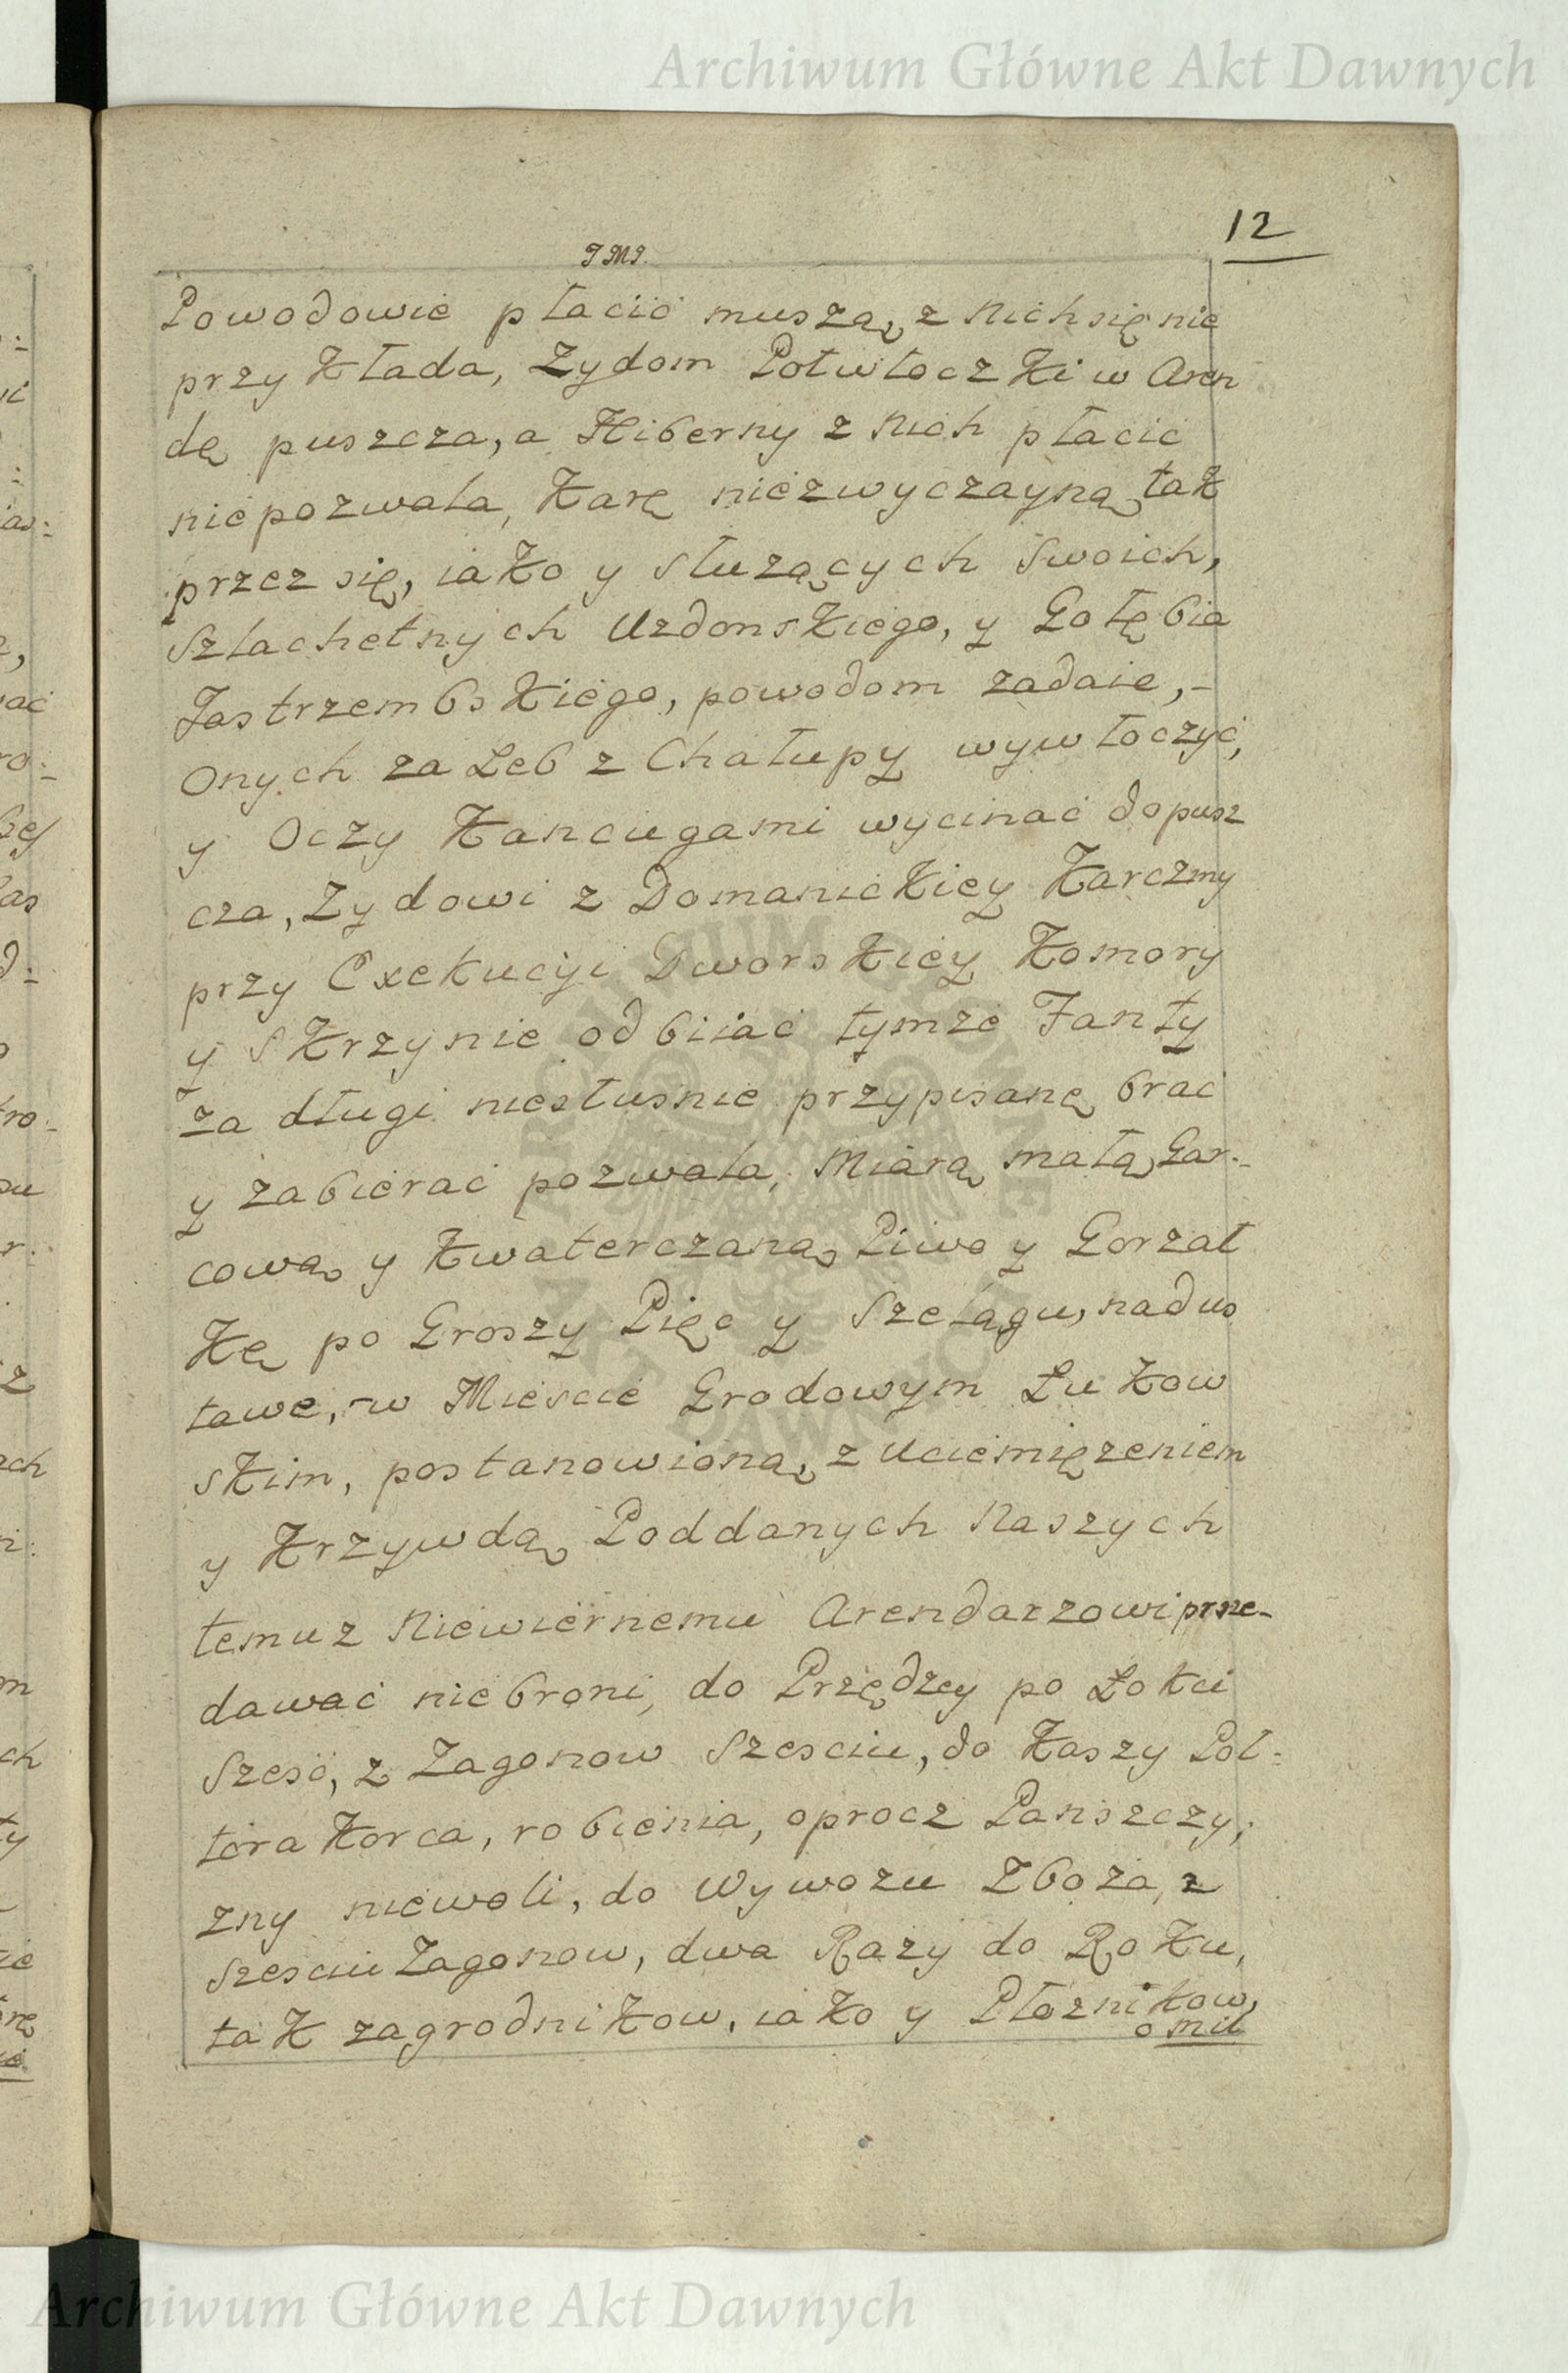 Archiwum Główne Akt Dawnych
12
J M J.
Powodowie płacić muszą, z Nich się nie
przykłada, Zydom Połwłoczki w Aren
dę puszcza, a Hiberny z Nich płacić
niepozwala, Karę niezwyczayną tak
przez się, iako y służących Swoich,
Szlachetnych Uzdonskiego, y Gołębia
Jastrzembskiego, powodom zadaie,-
Onych za Łeb z Chałupy wywłoczyć,
y Oczy Kanciugami wycinać dopusz
cza, Zydowi z Domanickiey Karczmy
przy Exekucyi Dworskiey Komory
y Skrzynie odbiiać tymże Fanty
za długi niesłusnie przypisanę brać
y zabierać pozwala, Miarą małą Gar:
cową y Kwaterczaną Piwo y Gorzał
Kę po Groszy Pięć y Szelągu, nad us
tawę, w Mieście Grodowym Łukow
skim, postanowioną, z uciemiężeniem
y Krzywdą Poddanych Naszych
temuz Niewiernemu Arendarzowi prze-
dawać niebroni, do Przędzy po Łokci
Sześć, z Zagonow Szesciu, do Kaszy Poł:
tora Korca, robienia, oprocz Panszczy;
zny niewoli, do Wywozu Zboża, z
Szesciu Zagonow, dwa Razy do Roku,
tak zagrodnikow, iako y Płoznikow,
o mil
Archiwum Główne Akt Dawnych